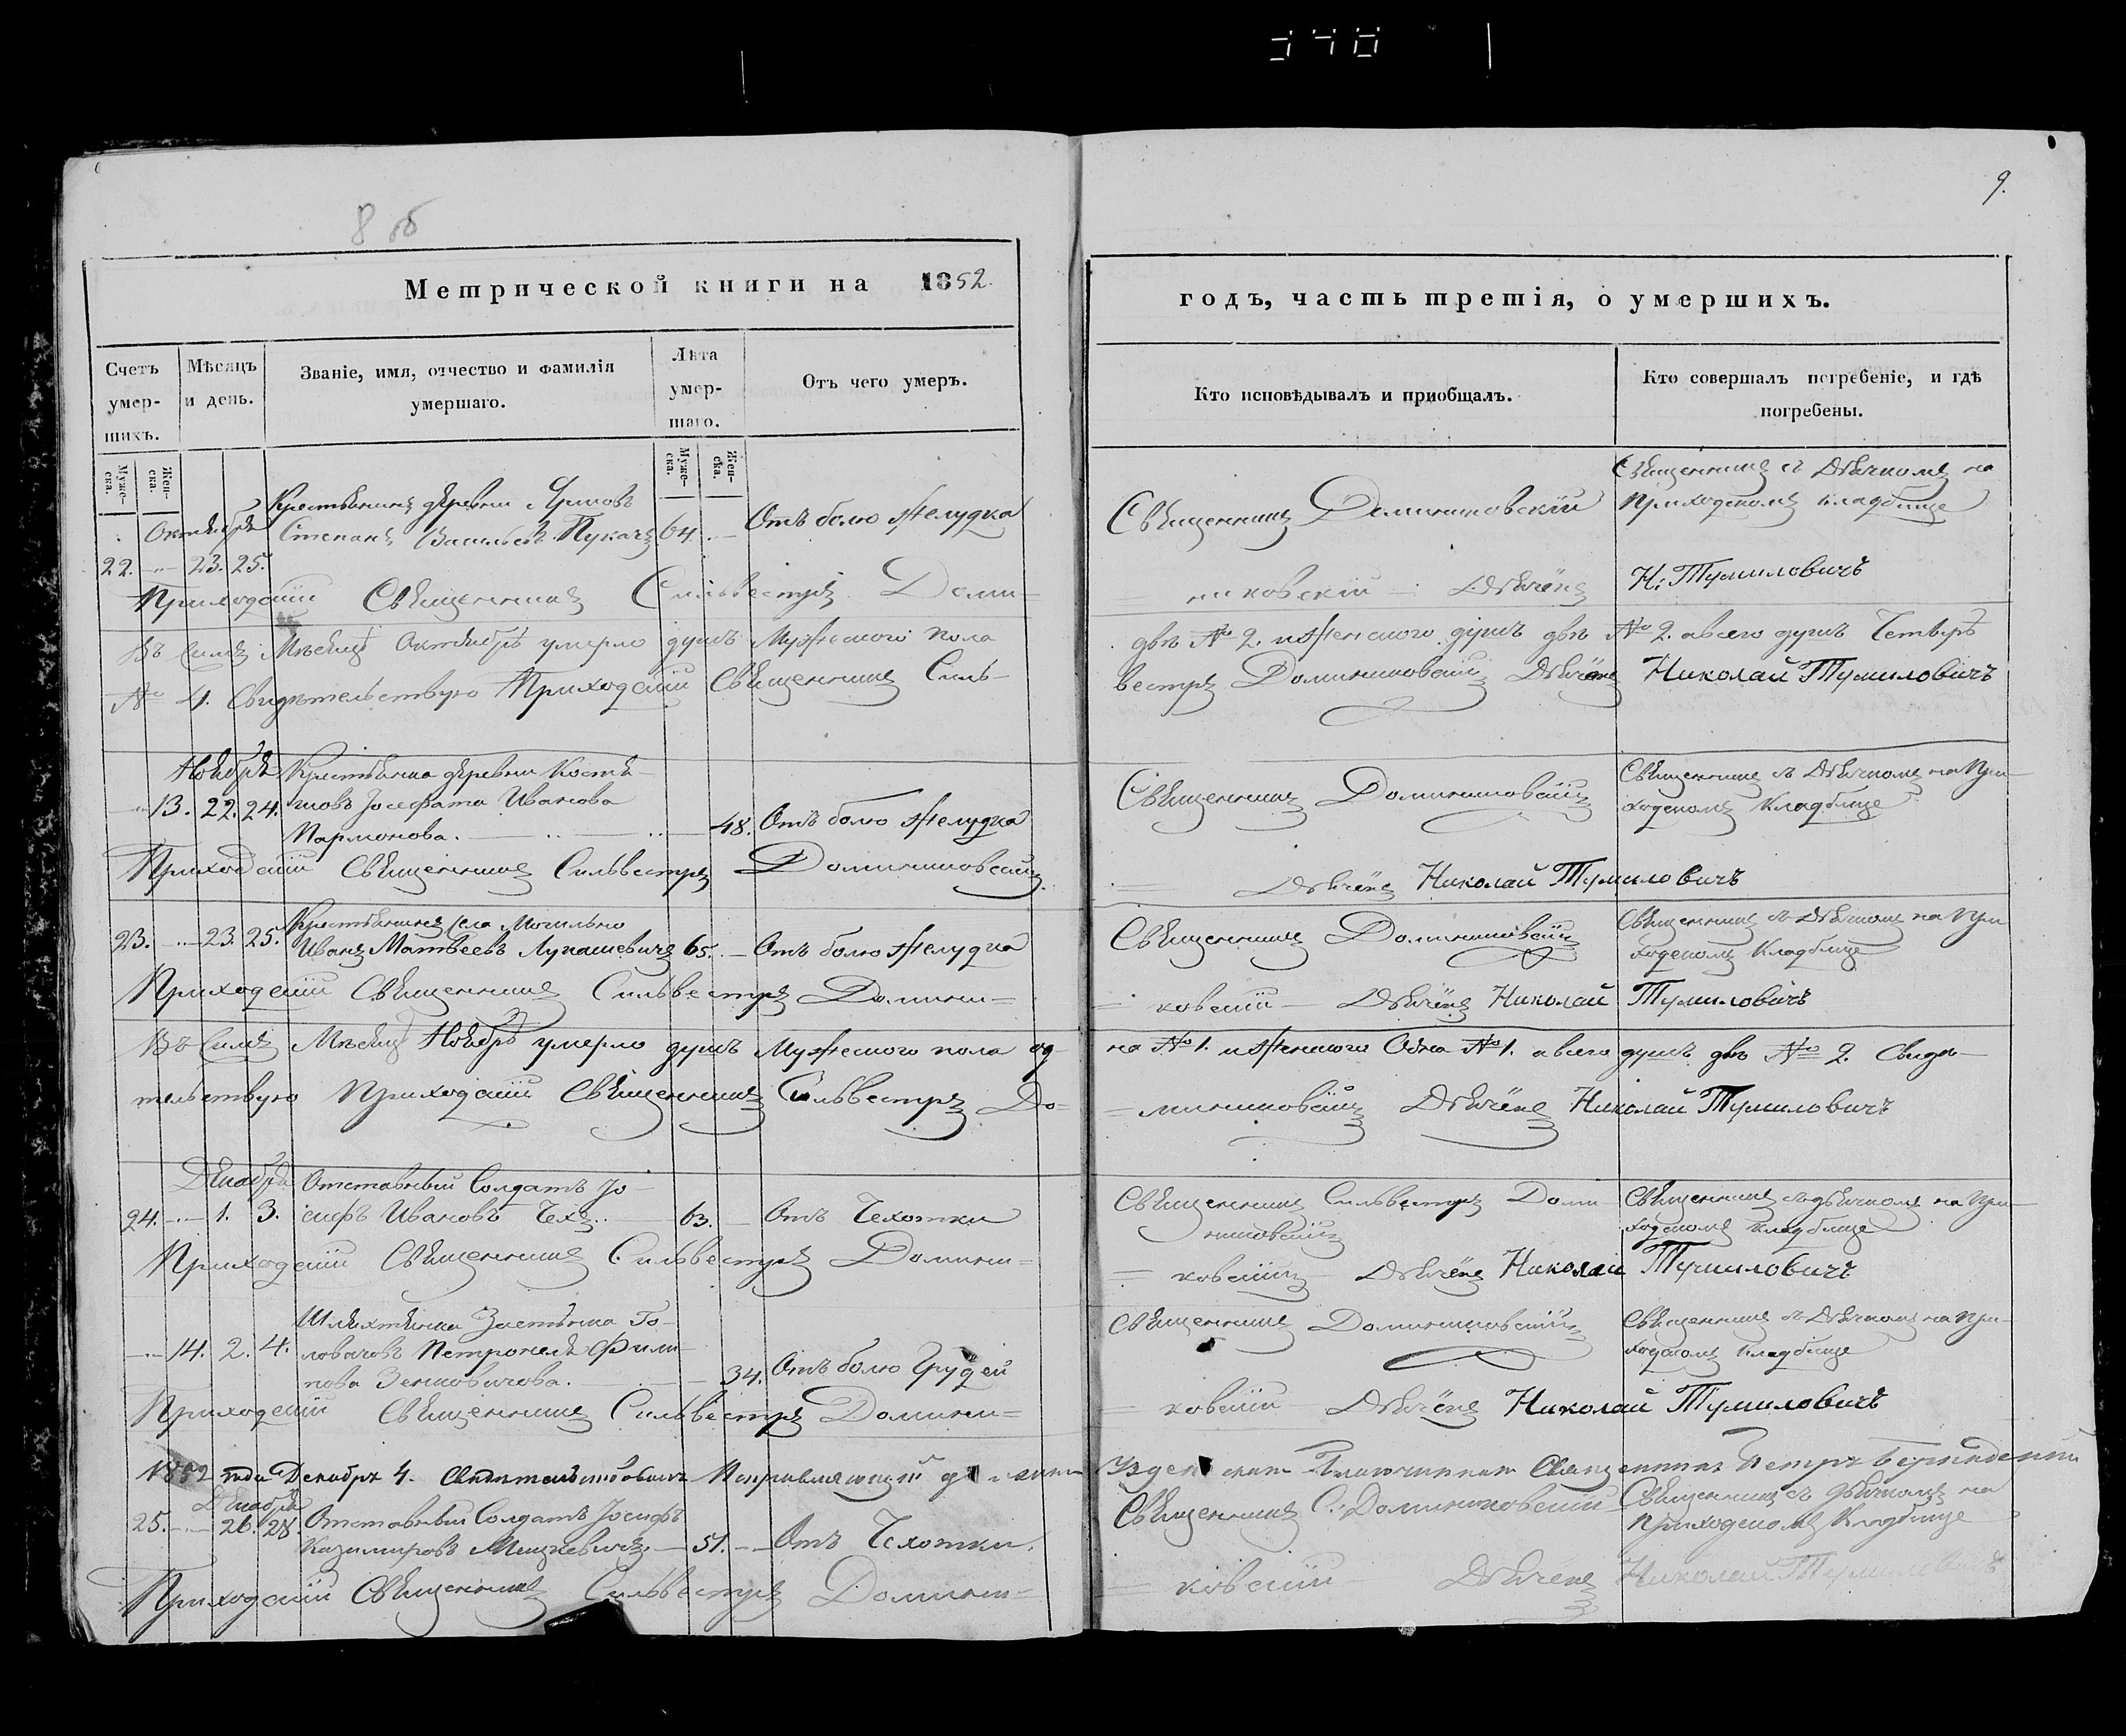 340
8 об
9.
Метрической книги на 1852.
годъ, часть третія, о умершихъ.
Счетъ умер-шихъ.
Мѣсяцъ и день.
Званіе, имя, отчество и фамилія умершаго.
Лѣта умер-шаго.
Отъ чего умеръ.
Кто исповѣдывалъ и пріобщалъ.
Кто совершалъ погребеніе, и гдѣ погребены.
Муже-ска.
Жен-ска.
Муже-ска.
Жен-ска.
Октября
Крестьянинъ деревни
22. 23. 25. Степанъ Васильевъ Пукачъ 64. Отъ болю желудка
Священникъ Доминиковскій
Священникъ съ Дьячкомъ на
Приходскомъ кладбище
Приходскій Священникъ Сильвестръ Доми-
никовскій Дьячёкъ Н: Тумиловичъ
Въ Семъ Мѣсяцѣ Октябрѣ умерло душъ Мужескаго пола
двѣ № 2. и женского душъ двѣ № 2. а всего душъ Четыре
№ 4. Свидѣтельствую Приходскій Священникъ Силь-
вестръ Доминиковскій Дьячёкъ Николай Тумиловичъ
Ноября
Крестьянка деревни Костю-
13. 22. 24. Іосефата Иванова
Пармонова. 48. Отъ болю желудка
Священникъ Доминиковскій
Священникъ съ Дьячкомъ на При-
ходскомъ Кладбище
Приходскій Священникъ Сильвестръ Доминиковскій
Дьячёкъ Николай Тумиловичъ
Крестьянинъ Села Могильно
23. 23. 25. Иванъ Матвеевъ Лукашевичъ 65. Отъ болю желудка
Священникъ Доминиковскій
Священникъ съ Дьячкомъ на При
ходскомъ Кладбище
Приходскій Священникъ Сильвестръ Домини-
ковскій Дьячёкъ Николай Тумиловичъ
Въ Семъ Мѣсяцѣ Ноябрѣ умерло душъ Мужеского пола од-
на № 1. и женского Одна № 1. а всего душъ двѣ № 2. Свидѣ-
тельствую Приходскій Священникъ Сильвестръ До-
миниковскій Дьячёкъ Николай Тумиловичъ
Декабря
Отставный Солдатъ Іо-
24. 1. 3. сифъ Ивановъ Чехъ 63. Отъ Чехотки
Священникъ Сильвестръ Доми
никовскій
Священникъ съ дьячкомъ на При-
ходскомъ кладбище
Приходскій Священникъ Сильвестръ Домини-
ковскій Дьячёкъ Николай Тумиловичъ
Шляхтянка Застѣнка Го-
14. 2. 4. ловачовъ Петронеля Фили-
пова Зенковичова. 34. Отъ болю Грудей
Священникъ Доминиковскій
Священникъ съ Дьячкомъ на При-
ходскомъ Кладбище
Приходскій Священникъ Сильвестръ Домини-
ковскій Дьячёкъ Николай Тумиловичъ
1852 года Декабря 4. Свидѣтельствовалъ Священникъ Петръ
Декабря
25. 26. 28. Отставный Солдатъ Іосифъ
Казимировъ Мицкевичъ 51. Отъ Чехотки.
Священникъ С: Доминиковскій
Священникъ съ дьячкомъ на
приходскомъ Кладбище
Приходскій Священникъ Сильвестръ Домини-
ковскій Дьячёкъ Николай Тумиловичъ